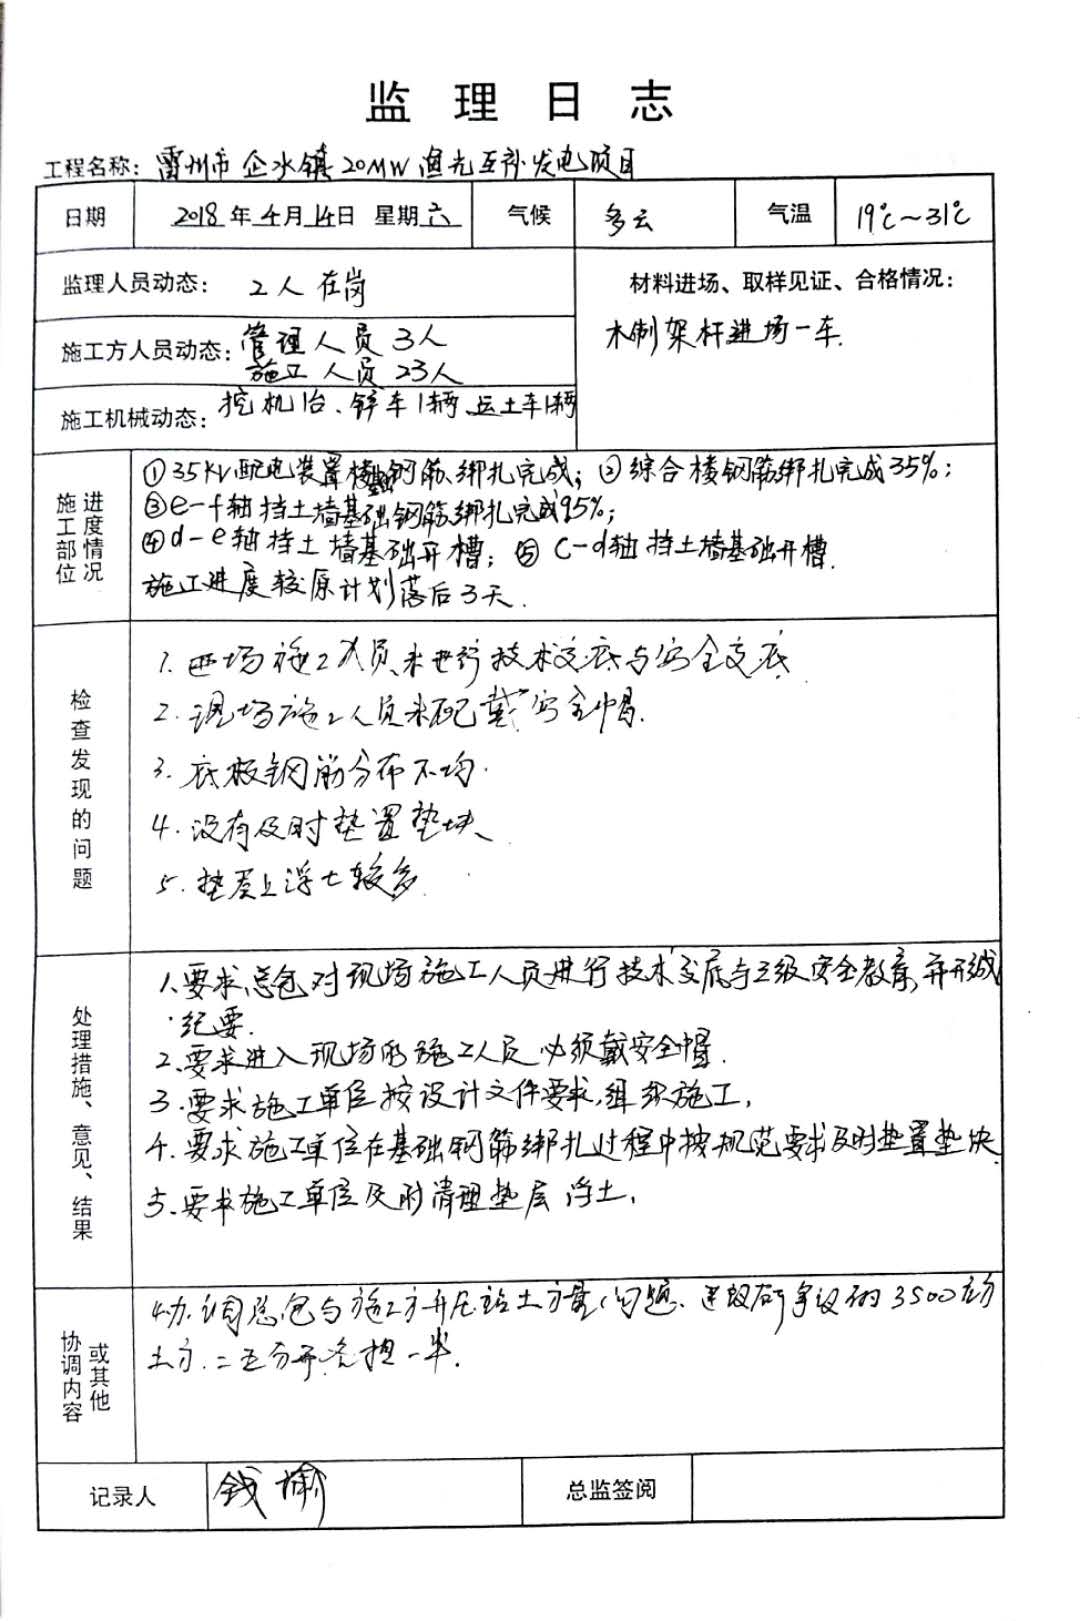 监理日志
工程名称: 雷州市企水镇20MW渔光互补发电项目
日期 2018年4月14日 星期六 气候 多云 气温 19℃~31℃
监理人员动态: 2人在岗
材料进场、取样见证、合格情况:
木制架杆进场一车.
施工方人员动态: 管理人员3人
施工人员23人
施工机械动态: 挖机1台、铲车1辆、运土车1辆
施工部位进度情况
①35KV配电装置楼基础钢筋绑扎完成; ②综合楼钢筋绑扎完成35%;
③e-f轴挡土墙基础钢筋绑扎完成95%;
④d-e轴挡土墙基础开槽; ⑤c-d轴挡土墙基础开槽.
施工进度较原计划落后3天.
检查发现的问题
1. 现场施工人员未进行技术交底与安全交底
2. 现场施工人员未配戴安全帽.
3. 底板钢筋分布不均.
4. 没有及时垫置垫块
5. 垫层上浮土较多
处理措施、意见、结果
1.要求总包对现场施工人员进行技术交底与三级安全教育,并形成
纪要.
2.要求进入现场的施工人员必须戴安全帽.
3.要求施工单位按设计文件要求,组织施工,
4.要求施工单位在基础钢筋绑扎过程中按规范要求及时垫置垫块
5、要求施工单位及时清理垫层浮土,
协调内容或其他
协调总包与施工方升压站土方量问题. 建议所争议的3500立方
土方.二五分开各担一半.
记录人 钱 总监签阅